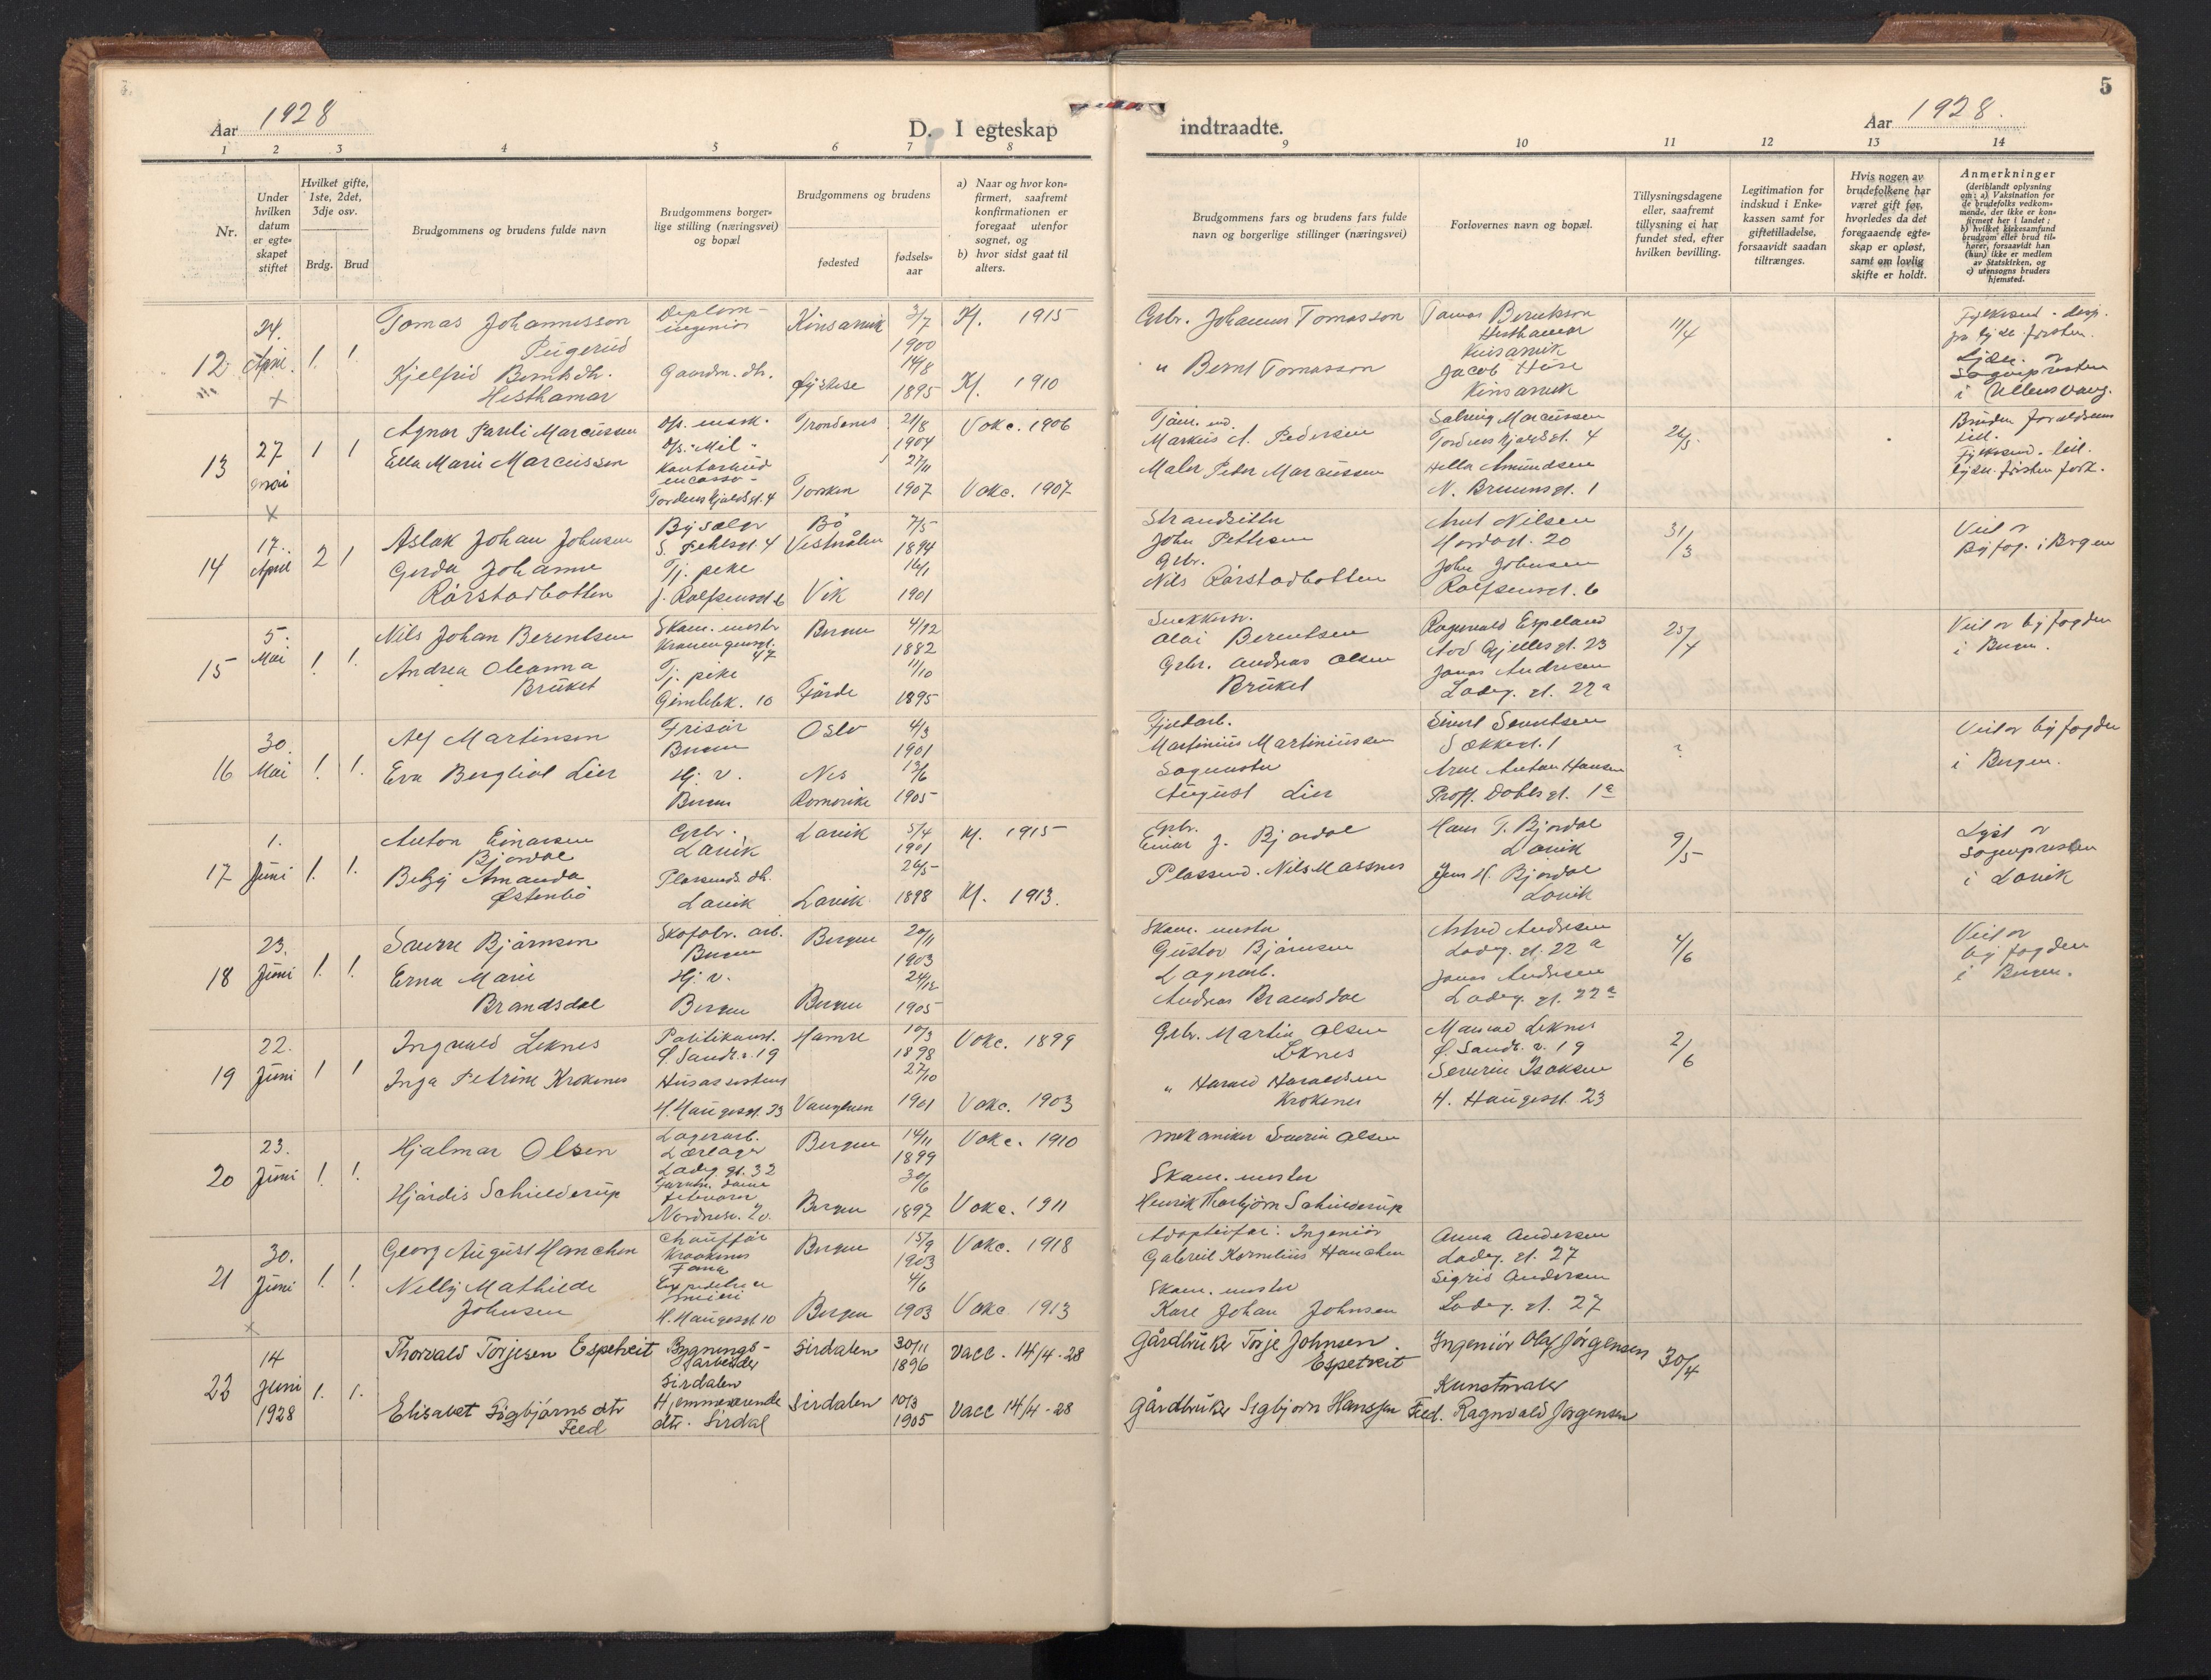 5
Aar 1928
D. I egteskap
indtraadte.
Aar 1928.
1 2 3 4 5 6 7 8 9 10 11 12 13 14
Nr.
Under hvilken datum er egte-skapet stiftet
Hvilket gifte, 1ste, 2det, 3dje osv.
Brdg. Brud
Brudgommens og brudens fulde navn
Brudgommens borger-lige stilling (næringsvei) og bopæl
Brudgommens og brudens
fødested
fødsels-aar
a) Naar og hvor kon-firmert, saafremt konfirmationen er foregaat utenfor sognet, og
b) hvor sidst gaat til alters.
Brudgommens fars og brudens fars fulde navn og borgerlige stillinger (næringsvei)
Forlovernes navn og bopæl.
Tillysningsdagene eller, saafremt tillysning ei har fundet sted, efter hvilken bevilling.
Legitimation for indskud i Enke-kassen samt for giftetilladelse, forsaavidt saadan tiltrænges.
Hvis nogen av brudefolkene har været gift før, hvorledes da det foregaaende egte-skap er opløst, samt om lovlig skifte er holdt.
Anmerkninger
(deriblandt oplysning om: a) Vaksination for de brudefolks vedkom-mende, der ikke er kon-firmert her i landet; b) hvilket kirkesamfund brudgom eller brud til-hører, forsaavidt han (hun) ikke er medlem av Statskirken, og c) utensogns bruders hjemsted.
12
24. April
1. 1.
Tomas Johannesson
Kjelfrid Berntsdh.
Hesthamar
Diplom-
ingeniør
Gaardm. dh.
Kinsarvik
3/7
1900
14/8
1895
Kf. 1915
Kf. 1910
Gbr. Johannes Tomasson
" Bernt Tomasson
Hesthamar
Kinsarvik
Jacob
Kinsarvik
11/4
Sognepresten
i Ullensvang.
13
27 mai
1 1
Agnar Pauli Marcussen
Ella Marie Marcussen
Tordenskjoldsgt. 4
Trondenes
Torsken
21/8
1904
27/11
1907
Vakc. 1906
Vakc. 1907
Markus A. Pedersen
Maler Peder Marcussen
Solveig Marcussen
Tordenskjoldsgt. 4
Amundsen
N. Bruunsgt. 1
26/5
14
17. April
2 1
Aslak Johan Johnsen
Gerda Johanne
Rørstadbotten
Byselger
Tj. pike
J. Rolfsensgt 6
Bø
Vesterålen
Vik
7/5
1894
16/1
1901
Strandsitter
John Pettersen
Gbr.
Nils Rørstadbotten
Arnt Nilsen
20
John Johnsen
Rolfsensgt. 6
31/3
Veil av
Byfog. i Bergen
15
5. Mai
1. 1.
Nils Johan Berentsen
Andrea Oleanna
Bruket
Skom. mester
47
Tj. pike
Gimlebk. 10
Bergen
Førde
4/12
1882
11/10
1895
Snekkerm.
Olai Berentsen
Gbr. Andreas Olsen
Bruket
Ragnvald Espeland
gt. 23
Jonas Andersen
Ladeg. gt. 22a
25/4
Veil av byfogden
i Bergen.
16
30. Mai
1. 1.
Alf Martinsen
Eva Bergliot Lier
Frisør
Bergen
Hj. v.
Bergen
Oslo
Nes
Romerike
4/3
1901
13/6
1905
Fjeldarb.
Martinius Martiniussen
August Lier
Arne Anton Hansen
Proff. Dahlsgt. 1a
?
Veil av byfogden
i Bergen.
17
1. Juni
1. 1.
Anton Einarsen
Bjordal
Betzy Amanda
Østenbø
Gbr.
Lavik
Plassmds dh.
Lavik
Lavik
Lavik
5/4
1901
26/5
1898
Kf. 1915
Kf. 1913.
Gbr.
Einar J. Bjordal
Plassmd. Nils Massnes
Hans T. Bjordal
Lavik
Jens H. Bjordal
Lavik
9/5
Lyst av
Sognepresten
i Lavik
18
23. Juni
1. 1.
Sverre Bjørnsen
Erna Marie
Brandsdal
Skofabr. arb.
Bergen
Hj. v.
Bergen
Bergen
Bergen
20/11
1903
24/12
1905
Skom. mester
Gustav Bjørnsen
Lagerarb.
Andreas Brandsdal
Astrid Andersen
Ladeg. gt. 22 a
Jonas Andersen
Ladeg. gt. 22a
4/6
Veil av
byfogden
i Bergen.
19
22. Juni
1 1
Ingvald Leknes
Inga Petrine Krokenes
Politikonst.
Ø. Sandv. v. 19
Husassistent
H. Haugesgt. 23
Hamre
10/3
1898
27/10
1901
Vakc. 1899
Vakc. 1903
Gbr. Martin Olsen
Leknes
" Harald Haraldsen
Krokenes
Leknes
Ø. Sandv. v. 19
Severin Isaksen
H. Haugesgt. 23
2/6
20
23. Juni
1. 1.
Hjalmar Olsen
Hjørdis Schielderup
Lagerarb.
Lærlager
Ladeg. gt. 32
Bergen
Bergen
14/11
1899
30/6
1897
Vakc. 1910
Vakc. 1911
Mekaniker Severin Olsen
Skom. mester
Henrik Thorbjørn Schielderup
21
30. Juni
1. 1.
Georg August Hanchen
Nelly Mathilde
Johnsen
Chauffør
Fana
H. Haugesgt 10
Bergen
Bergen
15/9
1903
4/6
1903
Vakc. 1918
Vakc 1913
Adoptivfar: Ingeniør
Gabriel Kornelius Hanchen
Skom. mester
Karl Johan Johnsen
Anna Andersen
Ladeg. gt. 27
Sigrid Andersen
Ladeg. gt. 27
22
14 Juni 1928
1. 1.
Thorvald Torjesen Espetveit
Elisabet Sigbjørns dtr
Feed
Bygnings-
arbeider
Sirdalen
Hjemmeværende
dtr. Sirdal
Sirdalen
Sirdalen
30/11
1896
10/3
1905
Vacc. 14/4-28
Vacc 14/4-28
Gårdbruker Torje Johnsen
Espetveit
Gårdbruker Sigbjørn Hanssen Feed.
Ingeniør Olaf Jørgensen
Kunstmaler
Ragnvald Jørgensen
30/4